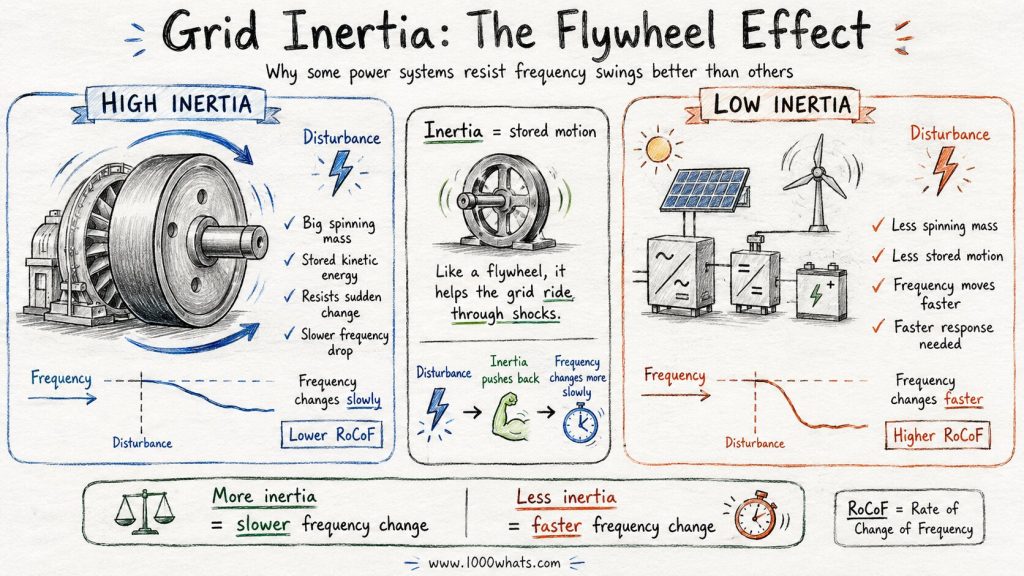 Grid Inertia: The Flywheel Effect
Why some power systems resist frequency swings better than others
HIGH INERTIA
Disturbance
✓ Big spinning
mass
✓ Stored kinetic
energy
✓ Resists sudden
change
✓ Slower frequency
drop
Frequency
Disturbance
Frequency
changes slowly
Lower RoCoF
Inertia = stored motion
Like a flywheel, it
helps the grid ride
through shocks.
Disturbance
Inertia
pushes back
Frequency
changes more
slowly
LOW INERTIA
Disturbance
~
=
=
=
+
✓ Less spinning mass
✓ Less stored motion
✓ Frequency moves
faster
✓ Faster response
needed
Frequency
Disturbance
Frequency
changes faster
Higher RoCoF
More inertia
= slower frequency change
Less inertia
= faster frequency change
RoCoF = Rate of
Change of Frequency
www.1000whats.com